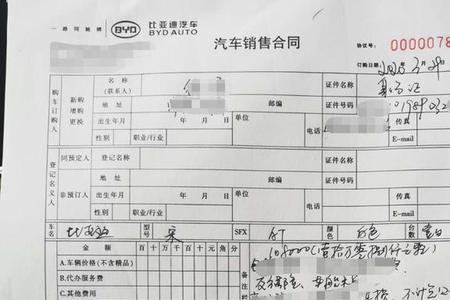 一路同驰骋 BYD 比亚迪汽车
BYD AUTO
汽车销售合同
协议号: 0000078
订购日期:
购车订购人 新购 增购 更换 名称 (联系人) 证件名称
地址 邮编 证件号码
出生年月 年 月 日 单位 电话 传真
性别 职业/行业 E-mail
登记名义人 同预定人 登记名称 证件名称
非预订人 地址 邮编 证件号码
出生年月 年 月 日 单位 电话 传真
性别 职业/行业 E-mail
车名 比亚迪 宋 SFX 颜色 白色 台数 壹台
金额 百 十 万 千 百 十 元 角 分 备注
A.车辆价格(不含精品)
B.代办服务费
C.其他费用